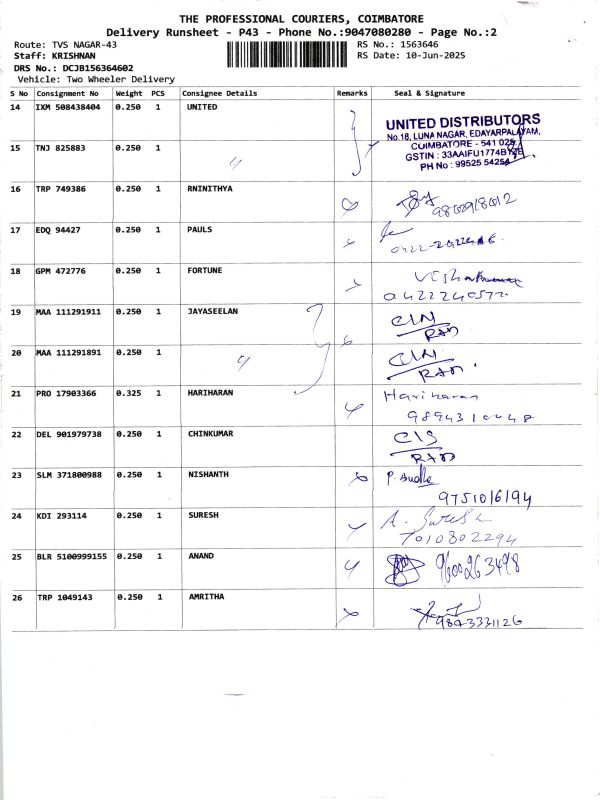 THE PROFESSIONAL COURIERS, COIMBATORE
Delivery Runsheet - P43 - Phone No.:9047080280 - Page No.:2
Route: TVS NAGAR-43
RS No.: 1563646
Staff: KRISHNAN
RS Date: 10-Jun-2025
DRS No.: DCJB156364602
Vehicle: Two Wheeler Delivery
S No Consignment No Weight PCS Consignee Details Remarks Seal & Signature
14 IXM 508438404 0.250 1 UNITED
UNITED DISTRIBUTORS
No.18, LUNA NAGAR, EDAYARPALAYAM,
15 TNJ 825883 0.250 1 COIMBATORE - 541 025
GSTIN : 33AAIFU1774B
PH No : 99525 54254
16 TRP 749386 0.250 1 RNINITHYA
17 EDQ 94427 0.250 1 PAULS
18 GPM 472776 0.250 1 FORTUNE
04222240572
19 MAA 111291911 0.250 1 JAYASEELAN
20 MAA 111291891 0.250 1
21 PRO 17903366 0.325 1 HARIHARAN Hariharan
22 DEL 901979738 0.250 1 CHINKUMAR
23 SLM 371800988 0.250 1 NISHANTH
9751016194
24 KDI 293114 0.250 1 SURESH A. Suresh
7010802294
25 BLR 5100999155 0.250 1 ANAND 9600263498
26 TRP 1049143 0.250 1 AMRITHA
9843331126